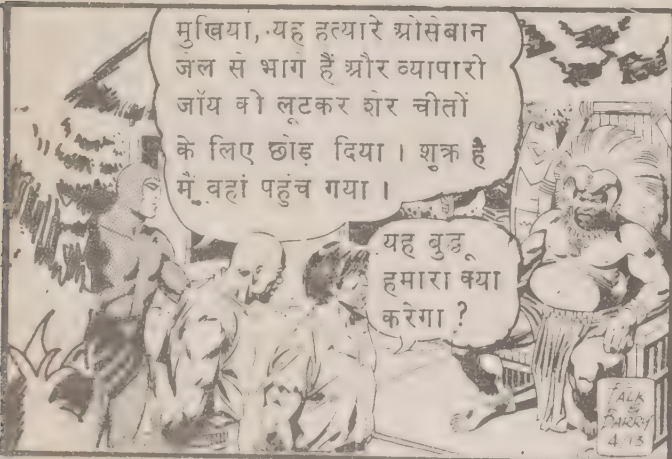 मुखिया, यह हत्यारे ओसेबान
जेल से भागे हैं और व्यापारी
जॉय को लूटकर शेर चीतों
के लिए छोड़ दिया । शुक्र है
मैं वहां पहुंच गया ।
यह बुद्धू
हमारा क्या
करेगा ?
FALK
&
BARRY
4-13